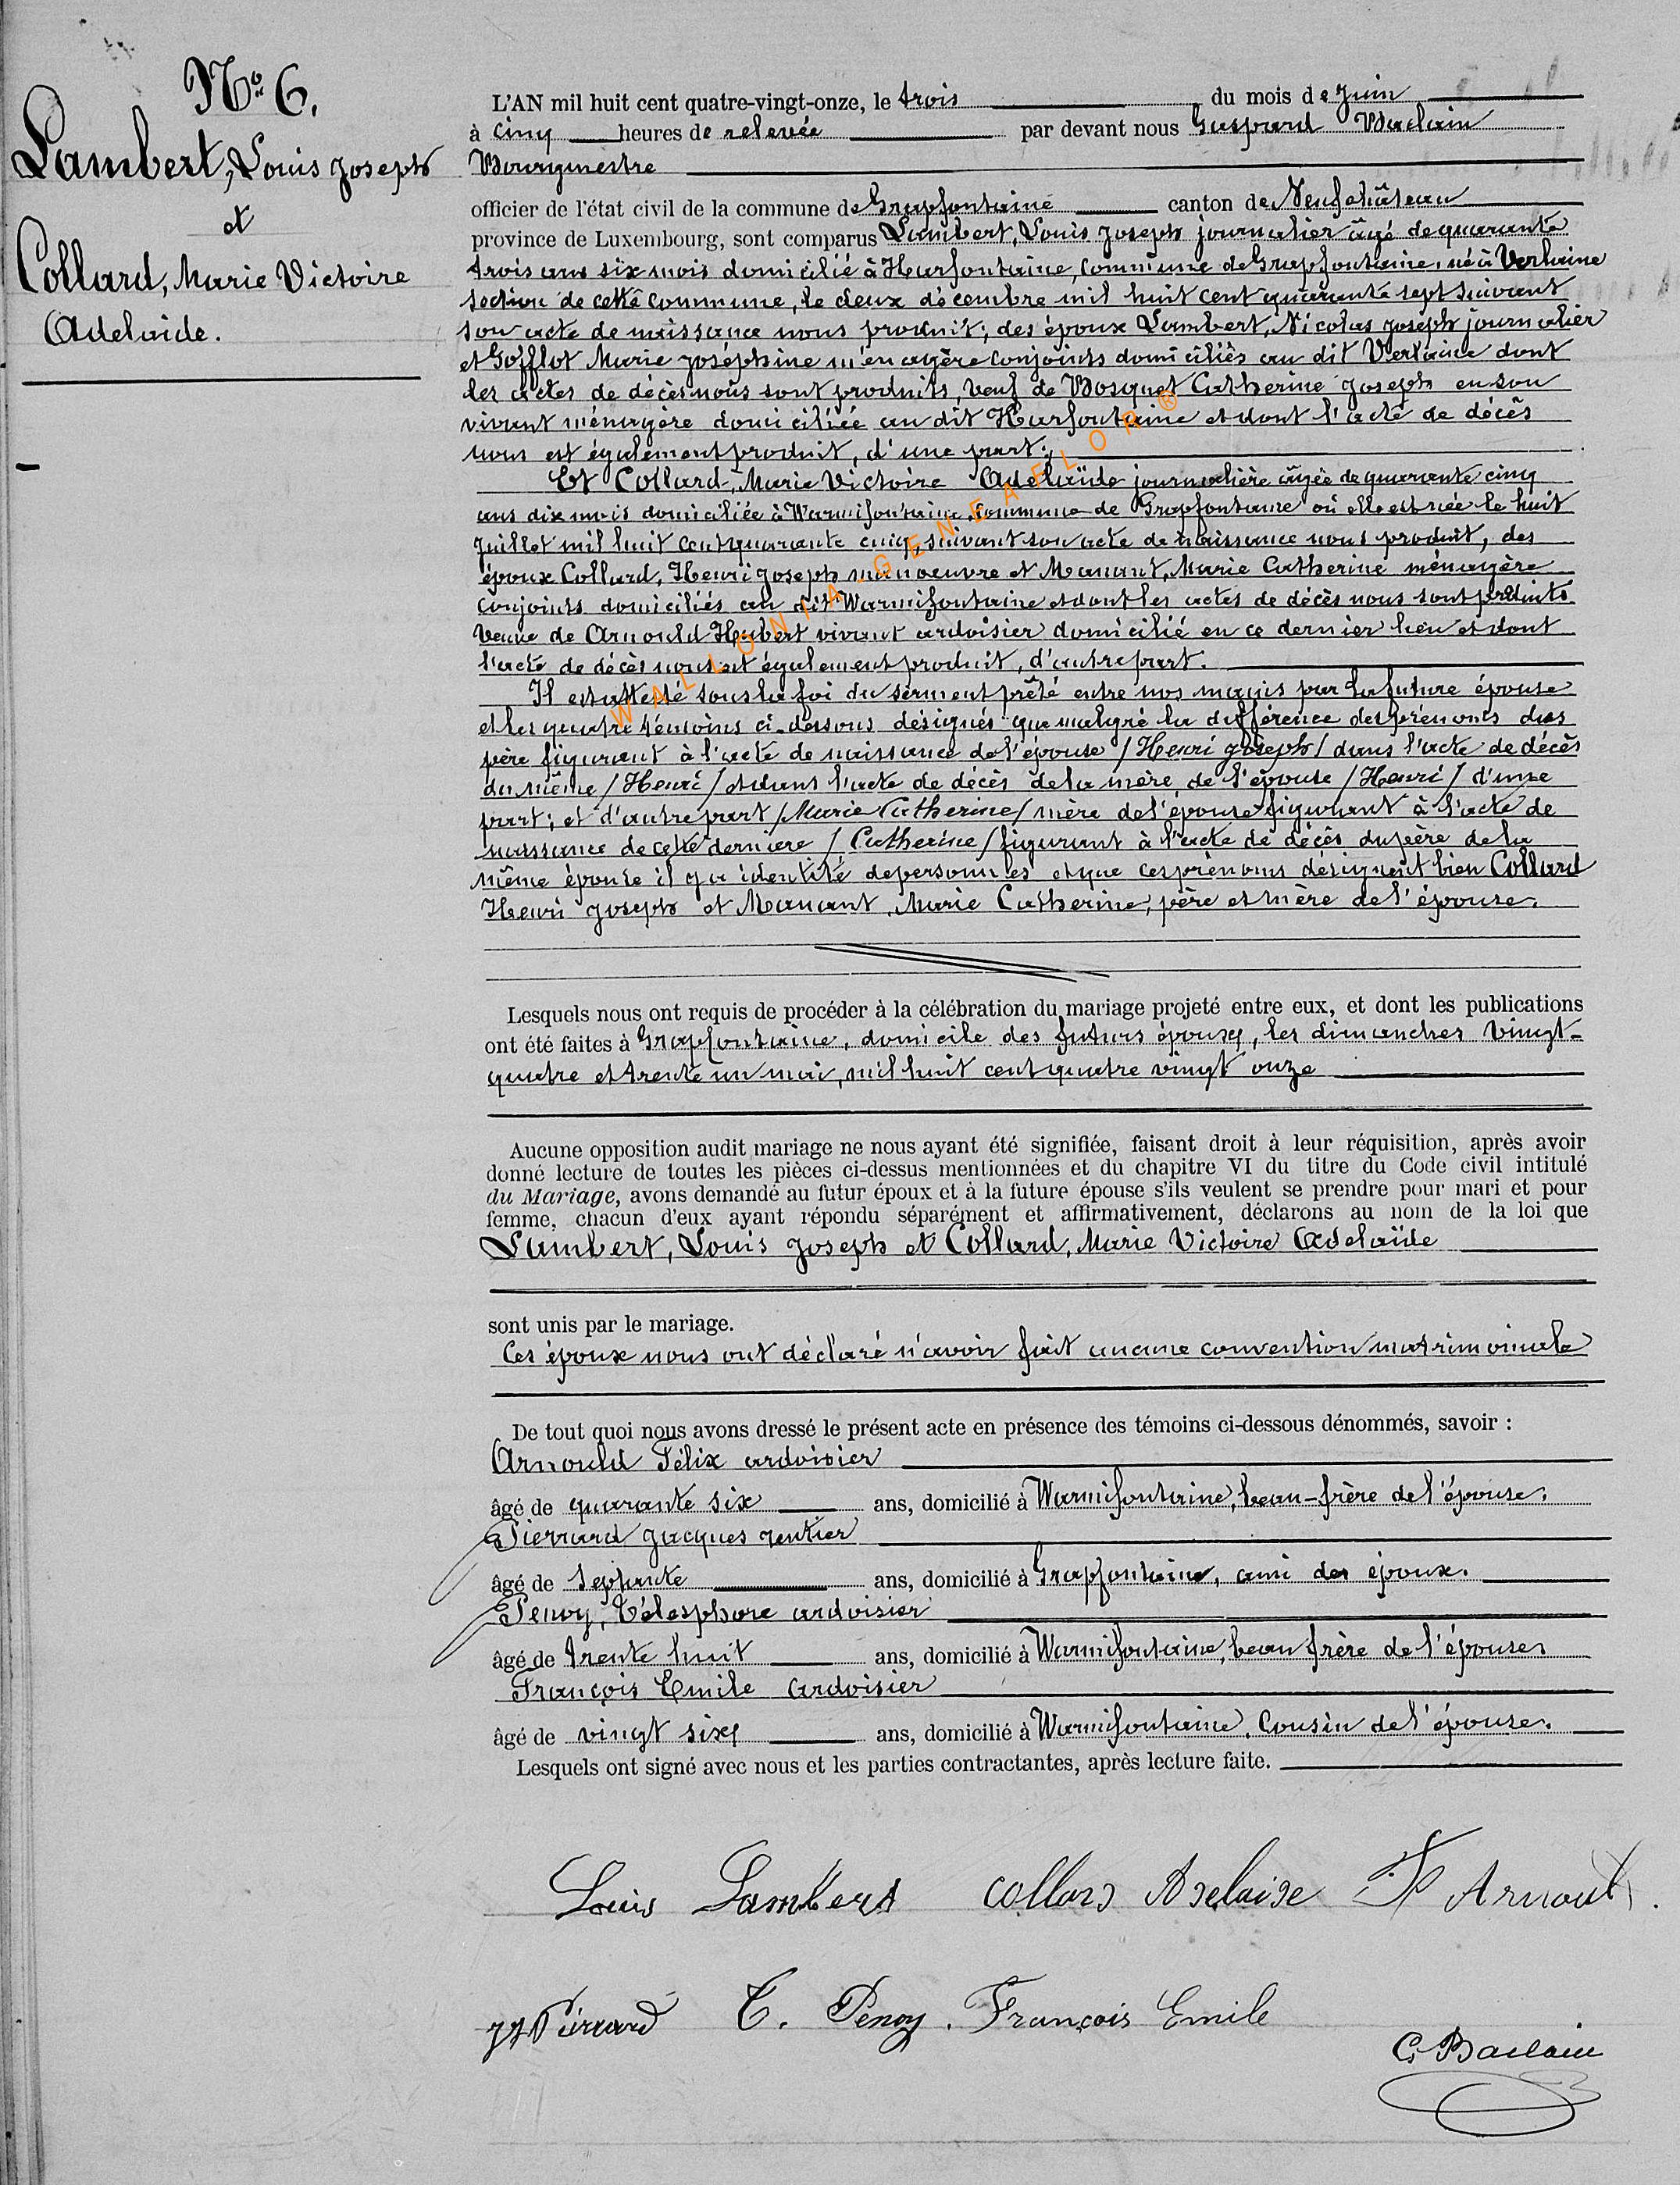 N° 6.
Lambert, Louis Joseph
et
Collard, Marie Victoire
Adelaide.
L'AN mil huit cent quatre-vingt-onze, le trois du mois de Juin
à cinq heures de relevée par devant nous Gaspard Baclain
Bourgmestre
officier de l'état civil de la commune de Grapfontaine canton de Neufchâteau
province de Luxembourg, sont comparus Lambert, Louis Joseph journalier âgé de quarante
trois ans six mois domicilié à Harfontaine, Commune de Grapfontaine, né à Verlaine
section de cette commune, le deux décembre mil huit cent quarante sept suivant
son acte de naissance nous produit; des époux Lambert, Nicolas Joseph journalier
et Gofflot Marie Joséphine ménagère conjoints domiciliés au dit Verlaine dont
les actes de décès nous sont produits, veuf de Bosquet Catherine Joseph en son
vivant ménagère domiciliée au dit Harfontaine et dont l'acte de décès
nous est également produit, d'une part;
Et Collard, Marie Victoire Adelaïde journalière âgée de quarante cinq
ans dix mois domiciliée à Warmifontaine, Commune de Grapfontaine où elle est née le huit
Juillet mil huit cent quarante cinq, suivant son acte de naissance nous produit, des
époux Collard, Henri Joseph manoeuvre et Manant, Marie Catherine ménagère
conjoints domiciliés au dit Warmifontaine et dont les actes de décès nous sont produits
Veuve de Arnould Hubert vivant ardoisier domicilié en ce dernier lieu et dont
l'acte de décès nous est également produit, d'autre part.
Il est attesté sous la foi du serment prêté entre nos mains par la future épouse
et les quatre témoins ci-dessous désignés que malgré la différence des prénoms des
père figurant à l'acte de naissance de l'épouse / Henri Joseph / dans l'acte de décès
du même / Henri / et dans l'acte de décès de la mère de l'épouse / Henri / d'une
part; et d'autre part / Marie Catherine / mère de l'épouse figurant à l'acte de
naissance de cette dernière / Catherine / figurant à l'acte de décès du père de la
même épouse il y a identité de personnes et que ces prénoms désignent bien Collard
Henri Joseph et Manant, Marie Catherine, père et mère de l'épouse.
Lesquels nous ont requis de procéder à la célébration du mariage projeté entre eux, et dont les publications
ont été faites à Grapfontaine, domicile des futurs époux, les dimanches vingt-
quatre et trente un mai, mil huit cent quatre vingt onze
Aucune opposition audit mariage ne nous ayant été signifiée, faisant droit à leur réquisition, après avoir
donné lecture de toutes les pièces ci-dessus mentionnées et du chapitre VI du titre du Code civil intitulé
du Mariage, avons demandé au futur époux et à la future épouse s'ils veulent se prendre pour mari et pour
femme, chacun d'eux ayant répondu séparément et affirmativement, déclarons au nom de la loi que
Lambert, Louis Joseph et Collard, Marie Victoire Adelaïde
sont unis par le mariage.
Ces époux nous ont déclaré n'avoir fait aucune convention matrimoniale
De tout quoi nous avons dressé le présent acte en présence des témoins ci-dessous dénommés, savoir :
Arnould Félix ardoisier
âgé de quarante six ans, domicilié à Warmifontaine, beau-frère de l'épouse.
Pierrard Jacques rentier
âgé de septante ans, domicilié à Grapfontaine, ami des époux.
Penoy, Télesphore ardoisier
âgé de trente huit ans, domicilié à Warmifontaine, beau frère de l'épouse
François Emile ardoisier
âgé de vingt six ans, domicilié à Warmifontaine, Cousin de l'épouse.
Lesquels ont signé avec nous et les parties contractantes, après lecture faite.
Louis Lambert Collard Adelaide F Arnould
Pierrard T. Penoy. François Emile
G. Baclain
WALLONIA-GENEAFLOR®